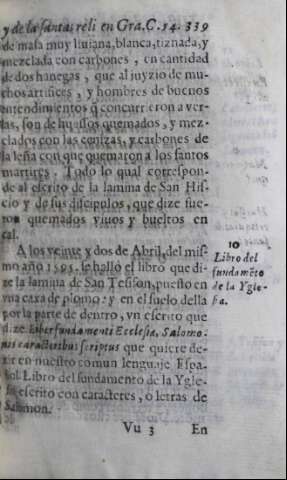 y de las santas reli en Gra.C.14. 339
de masa muy liuiana, blanca, tiznada, y
mezclada con carbones, en cantidad
de dos hanegas, que al juyzio de mu-
chos artifices, y hombres de buenos
entendimientos q̃ concurrieron a ver-
las, son de huessos quemados, y mez-
clados con las cenizas, y carbones de
la leña con que quemaron a los santos
martires. Todo lo qual correspon-
de al escrito de la lamina de San His-
cio y de sus discipulos, que dize fue-
ron quemados viuos y bueltos en
cal.
A los veinte y dos de Abril, del mis-
mo año 1595. se hallò el libro que di-
ze la lamina de San Tesifon, puesto en
vna caxa de plomo: y en el suelo della
por la parte de dentro, vn escrito que
dize Liber fundamenti Ecclesiæ, Salomo-
nis caracteribus scriptus que quiere de-
zir en nuestro comun lenguaje Espa-
ñol. Libro del fundamento de la Ygle-
sia escrito con caracteres, o letras de
Salomon.
Vu 3 En
10
Libro del
fundamẽto
de la Ygle-
sia.